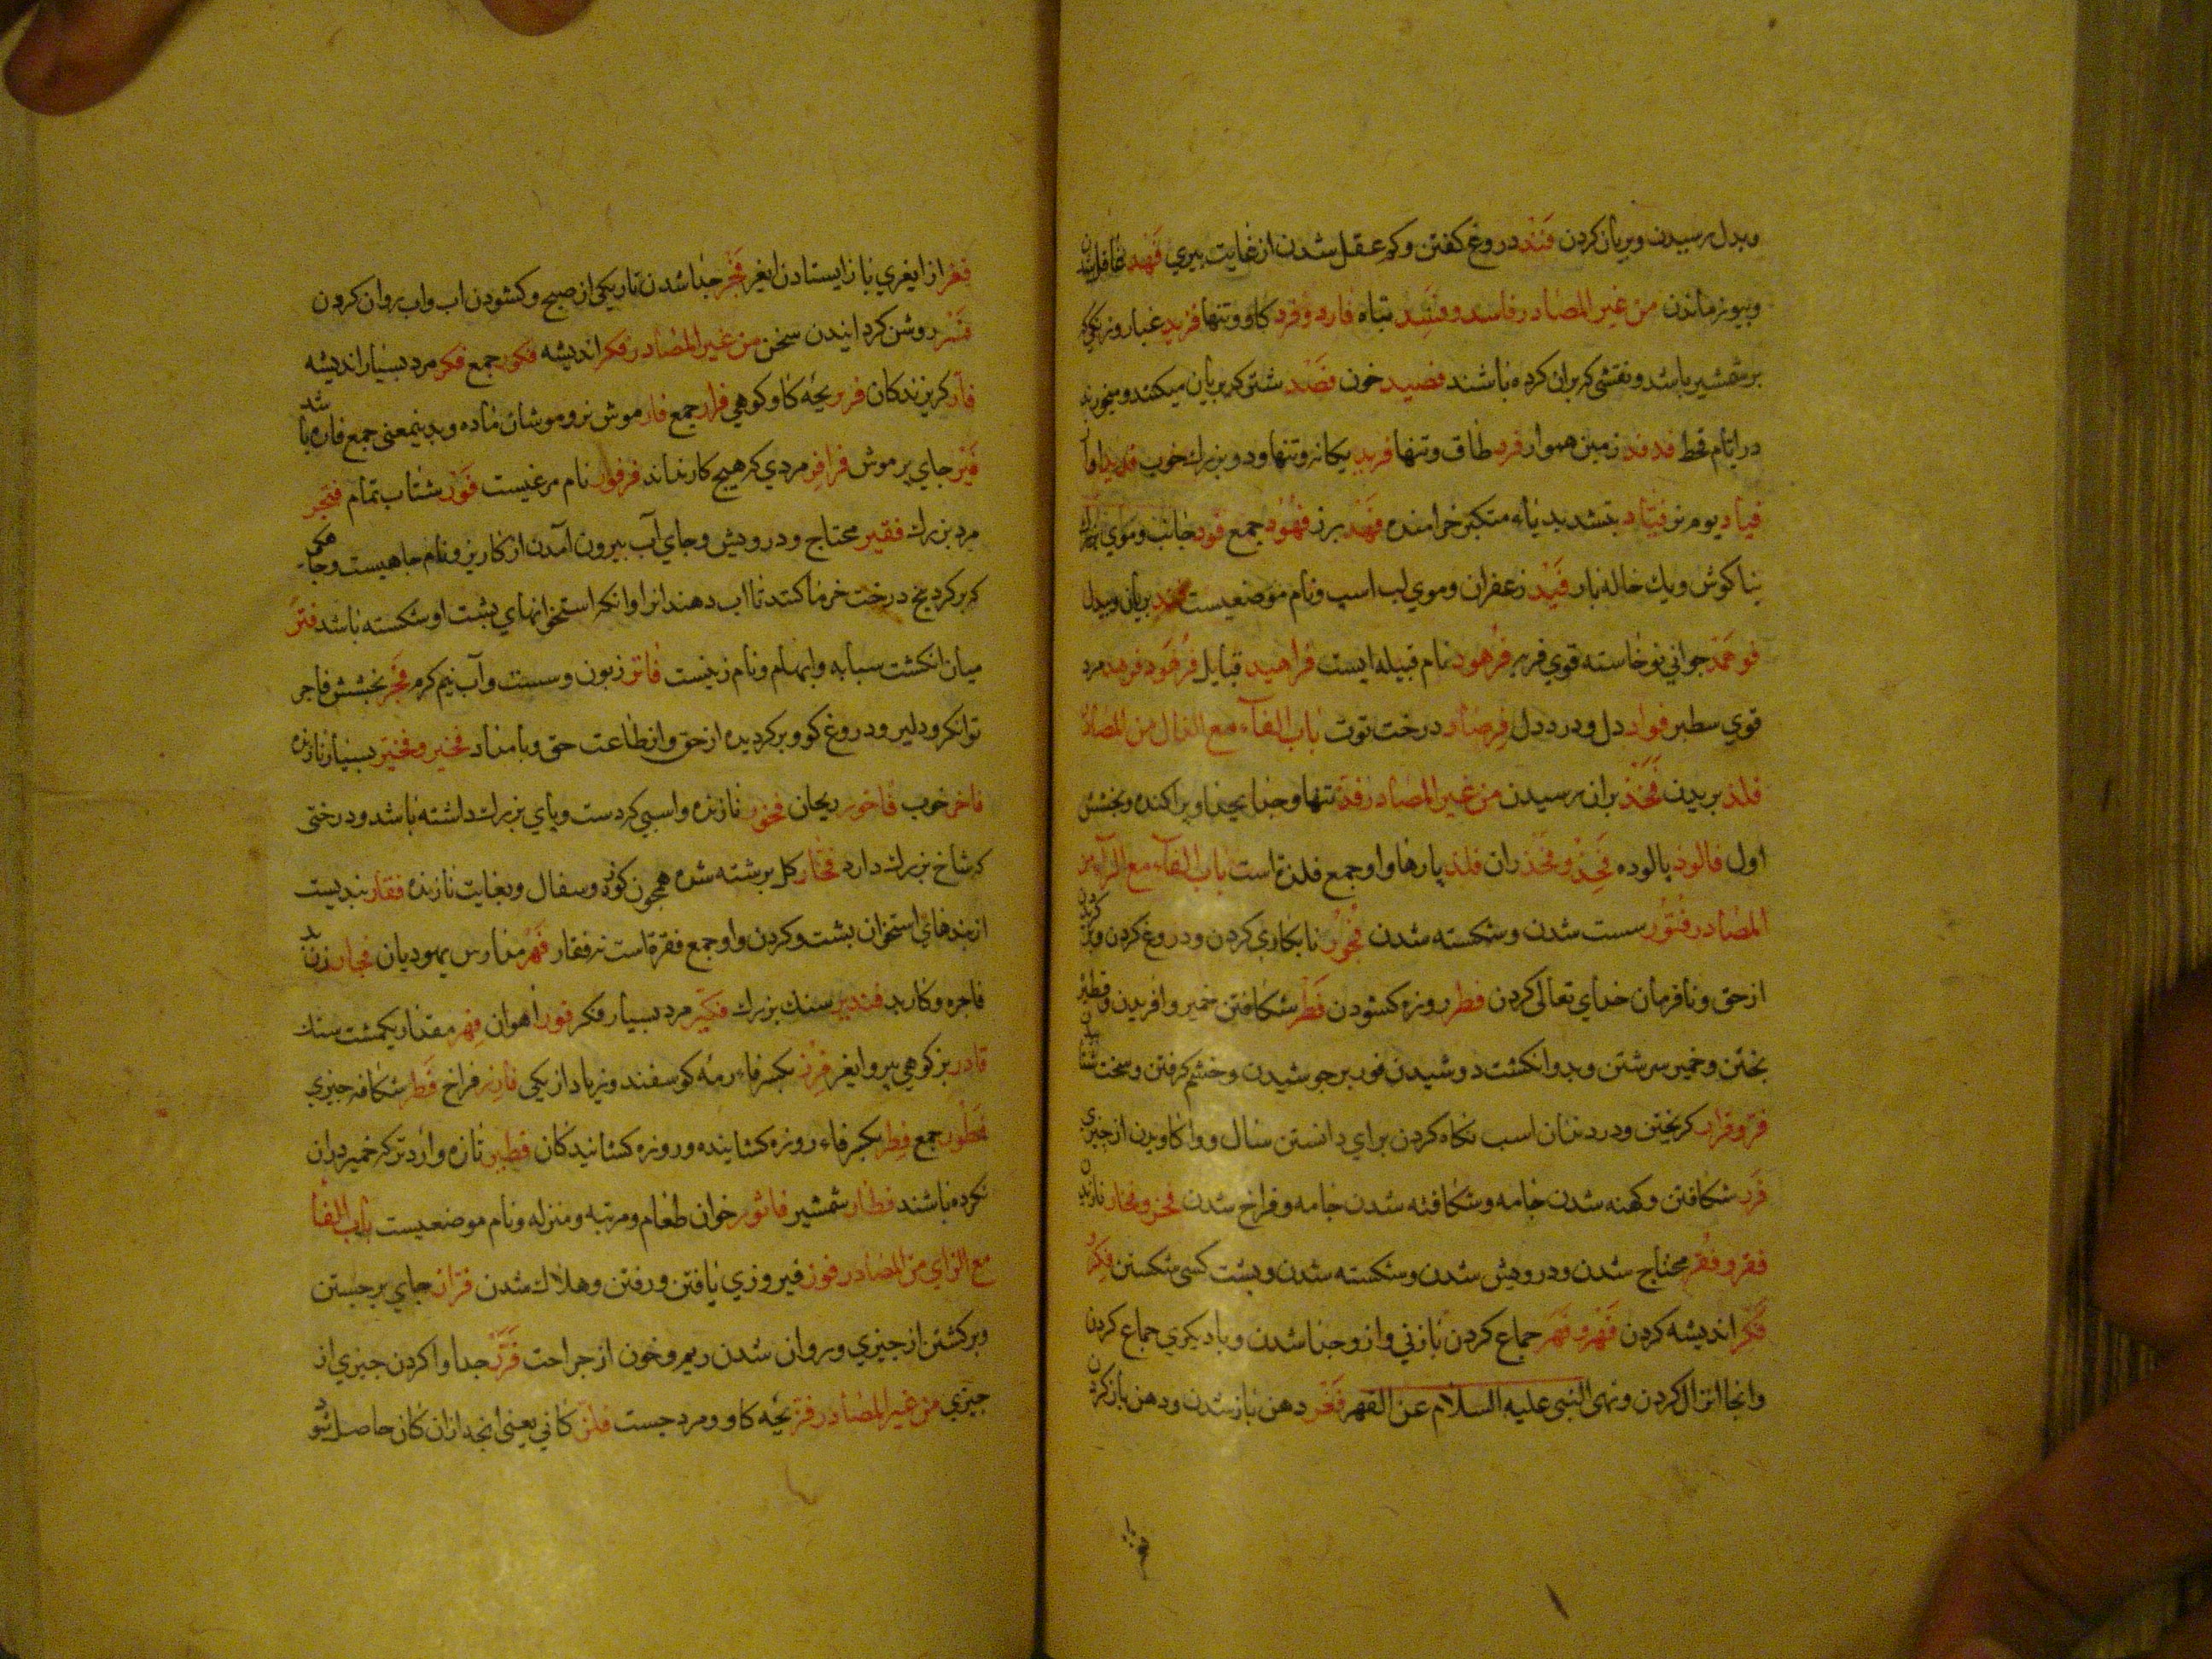 وبدل رسیدن وبریان کردن فند دروغ کفتن وکم عقل شدن از غایت پیری فهد غافل شدن
وبیوز ماندن من غیر المصادر فاسد وفسید تباه فارد وفرد کاو وتنها فرید غبار وزیکی که
بر شمشیر باشد ونقشی که بران کرده باشند فصید خون فصد شتن که بریان میکنند ومیخورند
در ایام قحط فدفد زمین هموار فرد طاق وتنها فرید یکانه وتنها ودر بزرك خوب
فیاد بوم نر فیّاد بتشدید یاء متکبر خرامنده فهد برز فهود جمع فود جانب وموی
بناکوش ویك خاله بار فید زعفران وموی لب اسب ونام موضعیست بریان وبیدل
فوهد جوانی نوخاسته قوی فربه فرهود نام قبیله ایست فراهید قبایل فرهود فرهد مرد
قوی سطبر فواد دل ودرد دل فرصاد درخت توت باب الفاء مع الذال من المصادر
فلذ بریدن فخذ بران رسیدن من غیر المصادر فذ تنها وجدا بجدا وپراکنده وبخشش
اول فالوذ پالوده فخذ وفخذ ران فلذ پارها واو جمع فلذة است باب الفاء مع الراء من
المصادر فتور سست شدن وشکسته شدن فجور نابکاری کردن ودروغ کردن
از حق ونافرمان خدای تعالی کردن فطر روزه کشودن فطر شکافتن خمیر وافریدن وفطیر
پختن وخمیر سرشتن وبدو انکشت دوشیدن فور بر جوشیدن وخشم کرفتن وسخت
فر وفرار کریختن ودر دندان اسب نکاه کردن برای دانستن سال ووا کاویدن از چیزی
فزر شکافتن وکهنه شدن جامه وشکافته شدن جامه وفراخ شدن فخر وفخار نازیدن
فقر وفقر محتاج شدن ودرویش شدن وشکسته شدن وپشت کسی شکستن فکر
فکر اندیشه کردن فهر وفهر جماع کردن بازنی وازو جدا شدن وبا دیکری جماع کردن
وانجا انزال کردن ونهی النبی علیه السلام عن الفهر فغر دهن باز شدن ودهن باز کردن
فغر از ایغری باز ایستادن ایغر فجر جدا شدن تاریکی از صبح وکشودن اب واب روان کردن
فسر روشن کردانیدن سخن من غیر المصادر فکر اندیشه فکور جمع فکر مرد بسیار اندیشه
فار کریزندکان فریر بچه کاو کوهی فرار جمع فار موش نر وموشان ماده وبدینمعنی جمع فاره باشد
فئر جای پر موش فرافر مردی که هیچ کار نداند فرفور نام مرغیست فور شتاب تمام فیجر
مرد بزرك فقیر محتاج ودرویش وجای آب بیرون آمدن از کاریز ونام جاهیست وجا
که بر کرد بیخ درخت خرما کنند تا اب دهند انرا وانکه استخوانهای پشت او شکسته باشد فتر
میان انکشت سبابه وابهام ونام زنیست فاتر زبون وسست وآب نیم کرم فجر بخشش فاجر
توانکر ودلیر ودروغ کو وبر کردیده از حق واز طاعت حق وبامداد فخیر وفخیر بسیار نازنده
فاخر خوب فاخور ریحان فخور نازنده واسبی که دست وپای بزرك داشته باشد ودرختی
که شاخ بزرك دارد فخار کل برشته شده همچون کوزه وسفال وبغایت نازنده فقار بندیست
از بندهای استخوان پشت وکردن واو جمع فقرة است نه فقار فهر مدارس یهودیان فجار زن
فاجره وکار بد فندیر سنك بزرك فکیر مرد بسیار فکر فور اهوان فهر مقدار یکمشت سنك
فادر بز کوهی پیر وایغر فزر بکسر فاء رمه کوسفند وزیاد از یکی فازر فراخ فطر شکاف چیزی
فطور جمع فطر بکسر فاء روزه کشاینده وروزه کشایندکان فطیر تازه وارد تر که خمیر دران
نکرده باشند فطار شمشیر فاثور خوان طعام ومرتبه ومنزله ونام موضعیست باب الفا
مع الزای من المصادر فوز فیروزی یافتن ورفتن وهلاك شدن فزان جای بر جستن
وبر کشتن از چیزی وروان شدن ریم وخون از جراحت فرز جدا واکردن چیزی از
چیزی من غیر المصادر فز بچه کاو ومرد چست فلز کانی یعنی انچه از ان کان حاصل شود